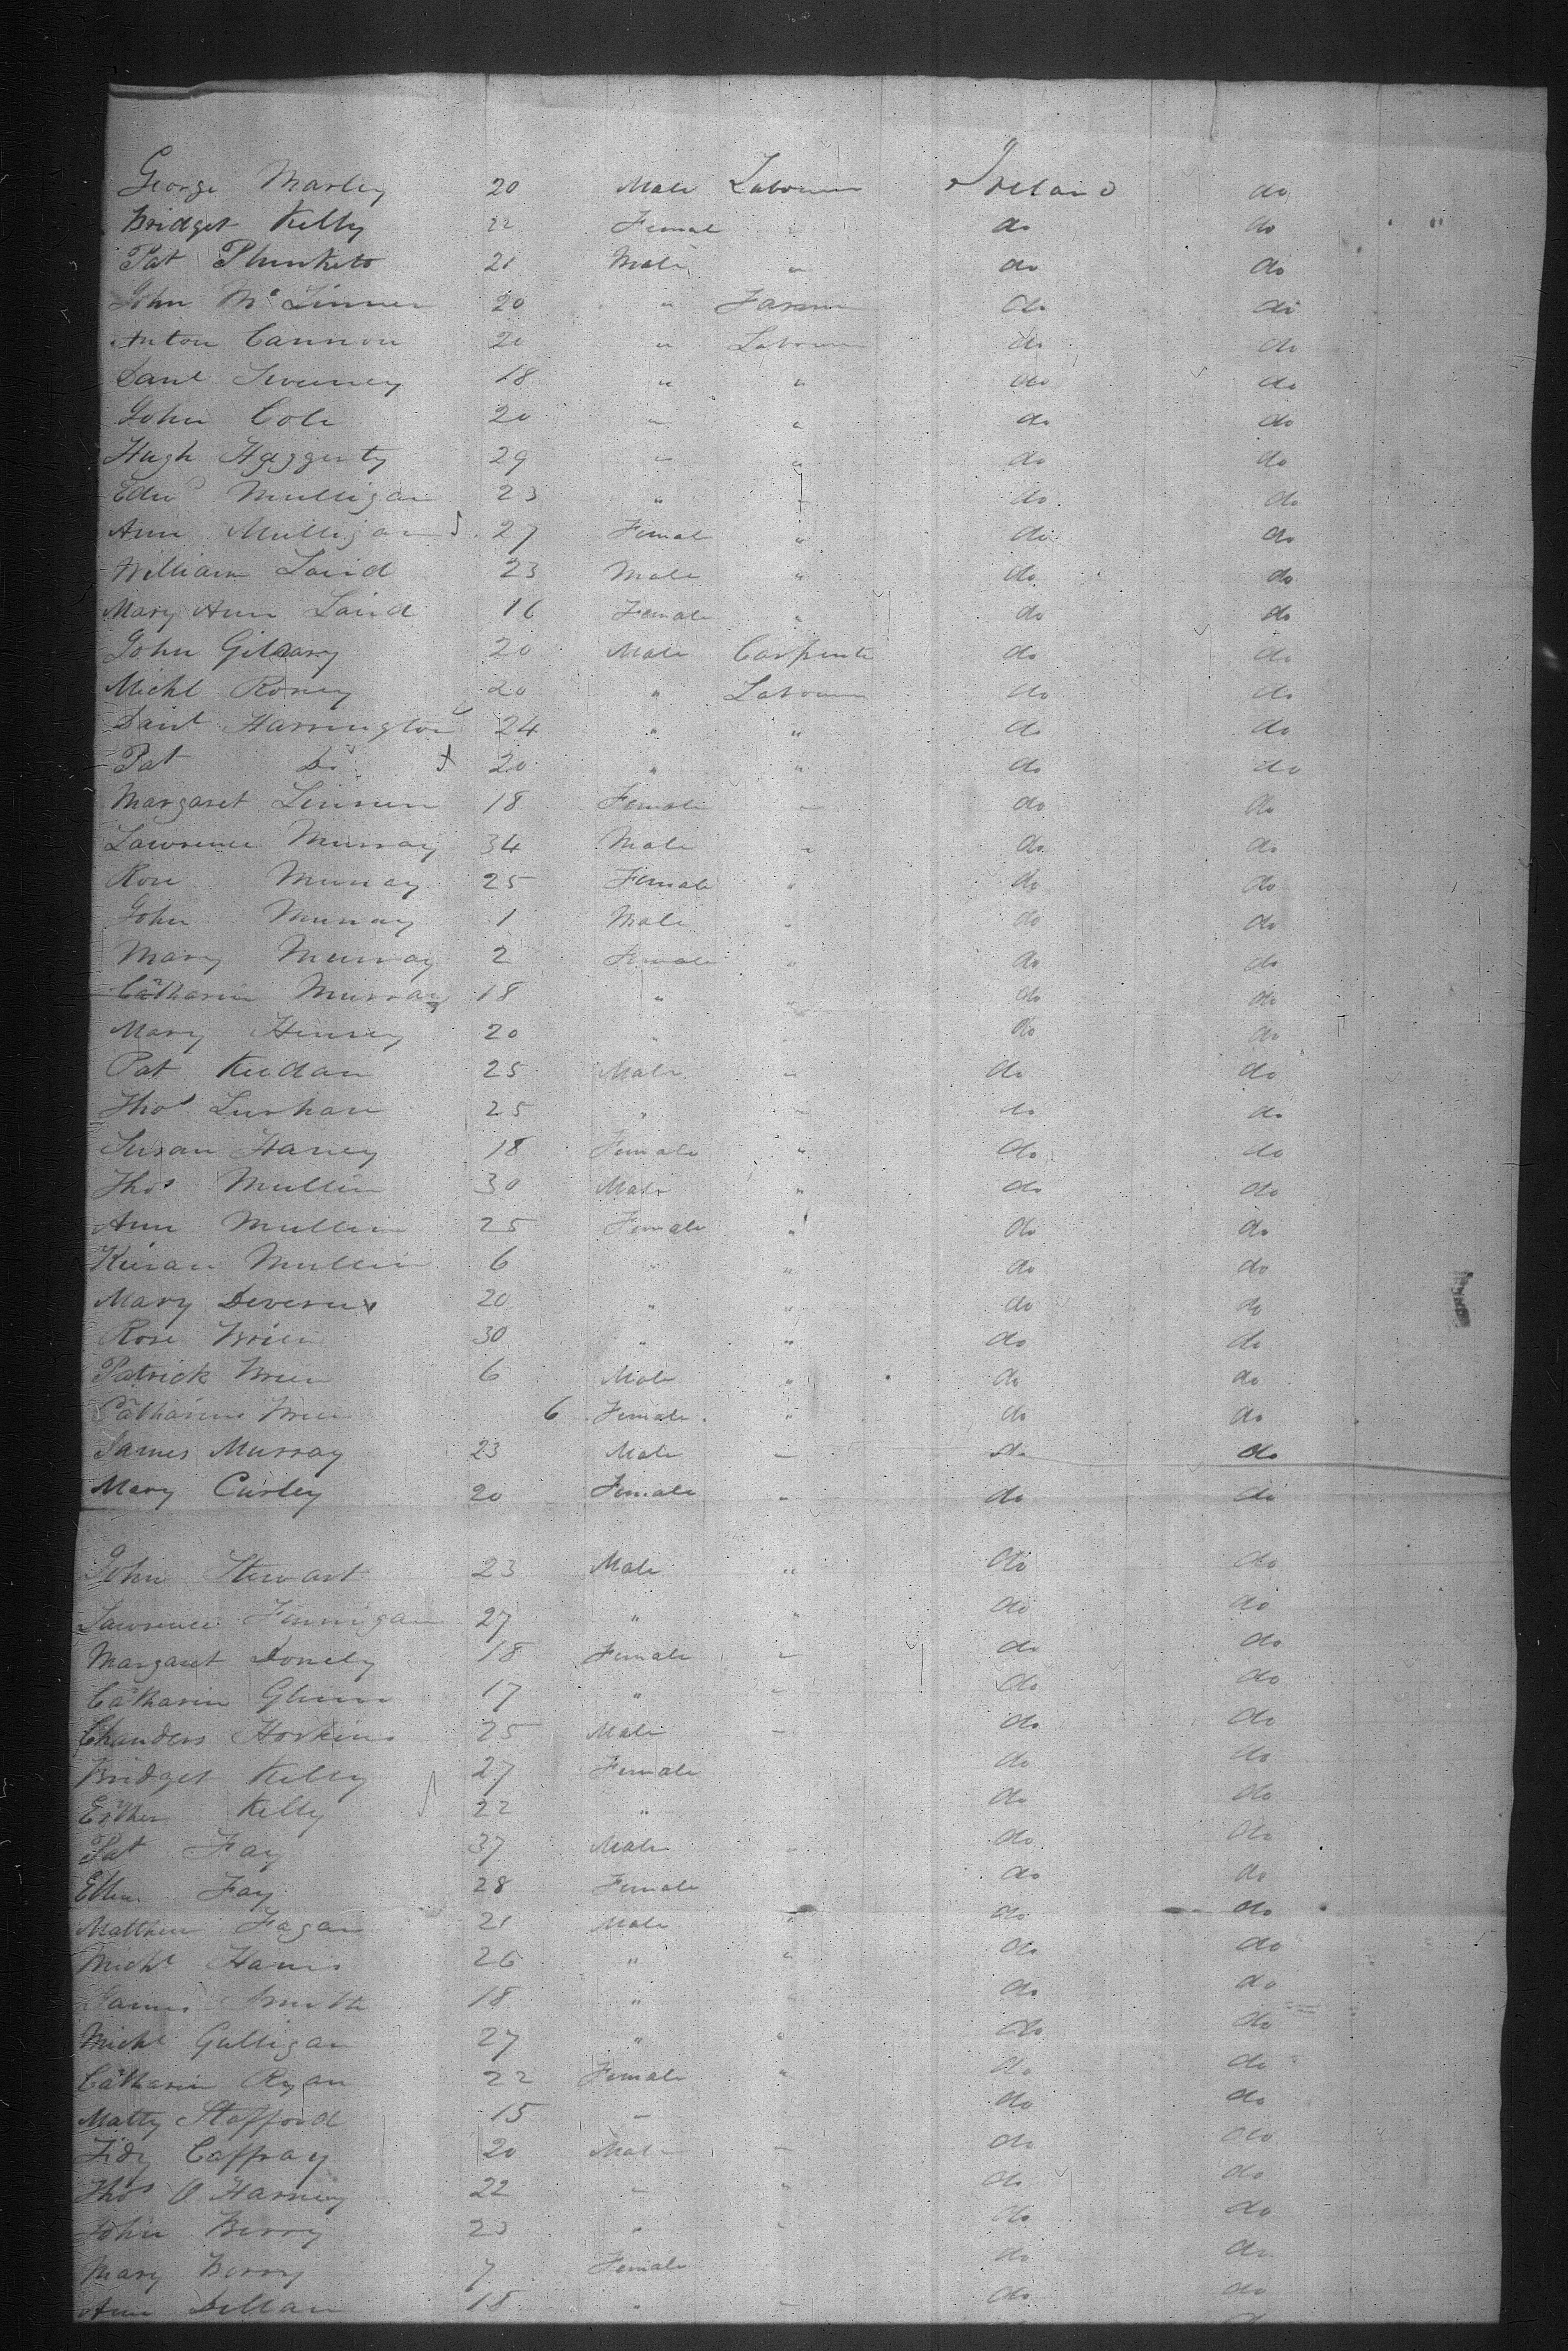 George Marley 20 Male Labourer Ireland do
Bridget Kelly 22 Female " do do "
Pat Plunkets 21 Male " do do
John Mc Linner 20 " Farmer do do
Anton Cannon 20 " Labourer do do
Danl Sweeney 18 " " do do
John Cole 20 " " do do
Hugh Haggerty 29 " " do do
Edwd Mulligan 23 " " do do
Ann Mulligan 27 Female " do do
William Laird 23 Male " do do
Mary Ann Laird 16 Female " do do
John Giloary 20 Male Carpenter do do
Michl Roney 20 " Labourer do do
Danl Harrington 24 " " do do
Pat Do 20 " " do do
Margaret Lennen 18 Female " do do
Lawrence Murray 34 Male " do do
Rose Murray 25 Female " do do
John Murray 1 Male " do do
Mary Murray 2 Female " do do
Catharin Murray 18 " " do do
Mary Henrey 20 " do do
Pat Keedan 25 Male " do do
Thos Lurhan 25 " " do do
Susan Haney 18 Female " do do
Thos Mullin 30 Male " do do
Ann Mullin 25 Female " do do
Kieran Mullin 6 " " do do
Mary Devereux 20 " " do do
Rose Brien 30 " " do do
Patrick Brien 6 Male " do do
Catharine Brien 6 Female " do do
James Murray 23 Male " do do
Mary Curley 20 Female " do do
John Stewart 23 Male " do do
Lawrence Finnigan 27 " " do do
Margaret Donely 18 Female " do do
Catharin Glinn 17 " " do do
Chanders Horkins 25 Male " do do
Bridget Kelly 27 Female do do
Esther Kelly 22 " do do
Pat Fay 37 Male " do do
Ellen Fay 28 Female do do
Matthew Fagan 21 Male " do do
Michl Harris 26 " " do do
James Smith 18 " " do do
Michl Galligan 27 " " do do
Catharin Ryan 22 Female " do do
Matty Stafford 15 " do do
Fidy Caffray 20 Male " do do
Thos O Harney 22 " " do do
John Berry 23 " " do do
Mary Berry 7 Female do do
Ann Dillan 18 " " do do